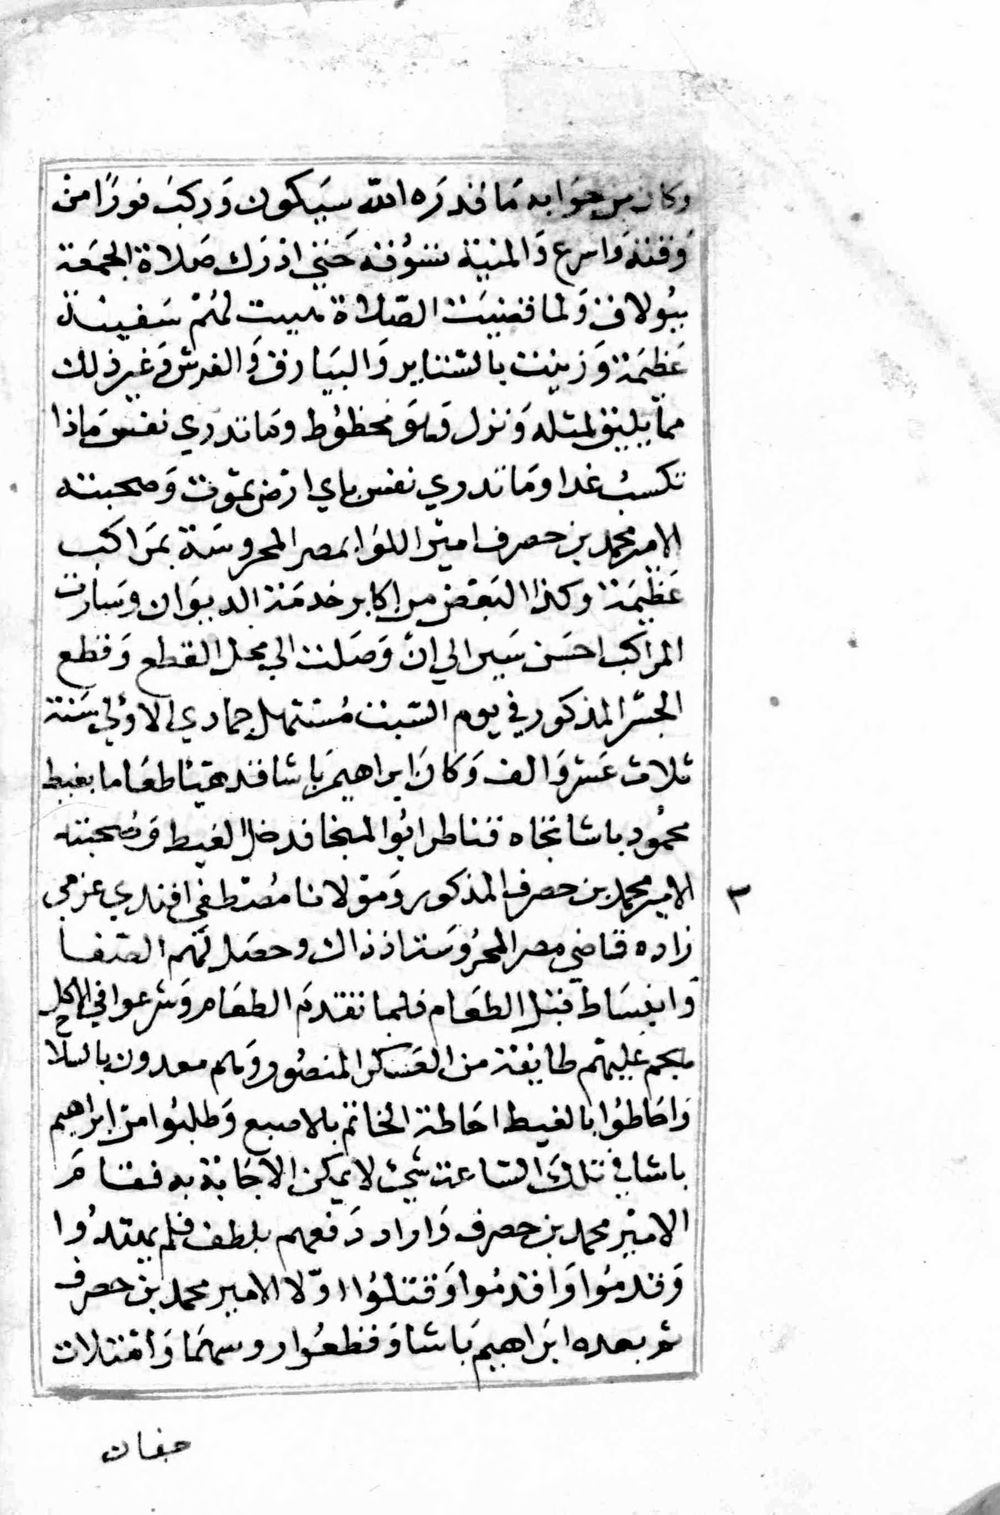 وكان من جوابه مَا قدرَه الله سَيَكون وَركبَ فورًا من
وَقته وَاسرع وَالمنية تسُوقه حَتي ادرَك صَلاة الجمعَة
ببُولاق وَلما قضيَت الصّلاة هييت لهُمْ سَفينة
عَظيمَة وَزينت بالشنانير وَالبيَارق وَالفرش وَغير ذلك
مما يليق لمثله وَنزل وَهوَ محظوُظ ومَا تدري نفسٌ مَاذا
تكسبُ غدا ومَا تدري نفس باي ارض تمَوت وَصحبته
الامير محمد بن حصرف اميرْ اللوَا بمصر المحروسَة بمرَاكب
عَظيمَة وكذا البَعْض من اكابر خدمَة الديوَان وسَارت
المراكب احسَن سَير الي انْ وَصَلت الي محل القطع وَقطع
الجسْر المذكور في يوم السّبت مُسْتهل جمادي الاوُلي سَنة
ثلاث عَشر وَالف وَكانَ ابراهيم بَاشا قد هيّا طعَاما بغيط
محمُود باشا تجاه قناطر ابُوا المنجا فدخل الغيط وَصُحبته
الامير محمد بن حصرف المذكور وَموْلانا مُصْطفي افندي عزمي
زاده قاضي مصر المحرُوسَة اذ ذاك وحصَل لهَم الصّفا
وَانبسَاط قبْل الطعَام فلما تقدمَ الطعَام وَشرعوا في الاكل
هجم عليهْم طايفة من العَسكر المنصُور وَهم معدون بالسلاح
وَاحَاطوُا بالغيط احَاطة الخاتم بالاصبع وَطلبُوا من ابراهيم
باشا في تلكَ السّاعة شيْ لا يمكن الاجَابَة به فقامَ
الامير محمد بن حصرف وَاراد دَفعهم بلطف فلم يهتدُوا
وَقدمُوا وَاقدمُوا وَقتلوُا اوّلا الامير محمد بن حصرف
ثم بعده ابرَاهيم بَاشا وَقطعُوا روسهمَا وَامْتلات
٣
جفان